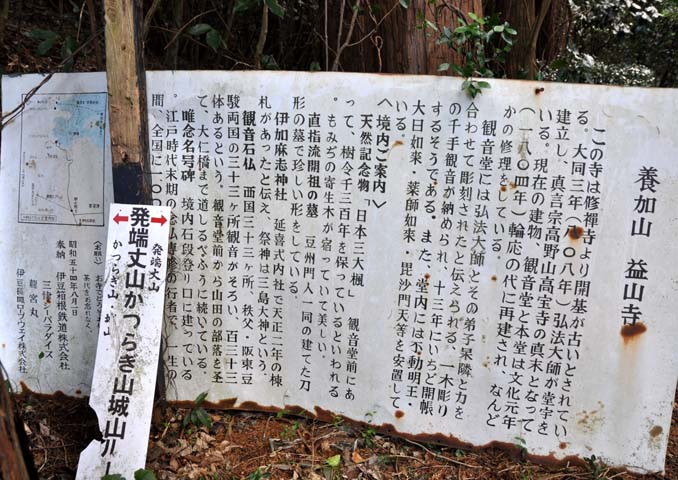 養加山 益山寺
この寺は修禅寺より開基が古いとされてい
る。大同三年(八〇八年)弘法大師が堂宇を
建立し、真言宗高野山高宝寺の真末となって
いる。現在の建物、観音堂と本堂は文化元年
(一八〇四年)輪応の代に再建され、なんど
かの修理をしている。
観音堂には弘法大師とその弟子杲隣と力を
合わせて彫刻されたと伝えられる、一木彫り
の千手観音が納められ、十三年にいちど開帳
するそうである。また、堂内には不動明王・
大日如来・薬師如来・毘沙門天等を安置して
いる。
〈境内ご案内〉
天然記念物「日本三大楓」 観音堂前にあ
って、樹令千三百年を保っているといわれる
。もみぢの寄生木が宿っていて美しい。
直指流開祖の墓 豆州門人一同の建てた刀
形の墓で珍しい形をしている。
伊加麻志神社 延喜式内社で天正二年の棟
札があったと伝え、祭神は三島大神という。
観音石仏 西国三十三ヶ所、秩父・阪東豆
駿両国の三十三ヶ所観音がそろい、百三十三
体あるという。観音堂前から山田の部落を圣
て、大仁橋まで道しるべふうに続いている。
唯念名号碑 境内石段登り口に建っている
。江戸時代末期の念仏専修の行者で、一生の
間、全国に一〇
昭和五十四年八月一日
奉納 伊豆箱根鉄道株式会社
三津シーパラダイス
龍宮丸
伊豆長岡ロープウェイ株式会社
発端丈山
かつらぎ山・城山
発端丈山かつらぎ山城山